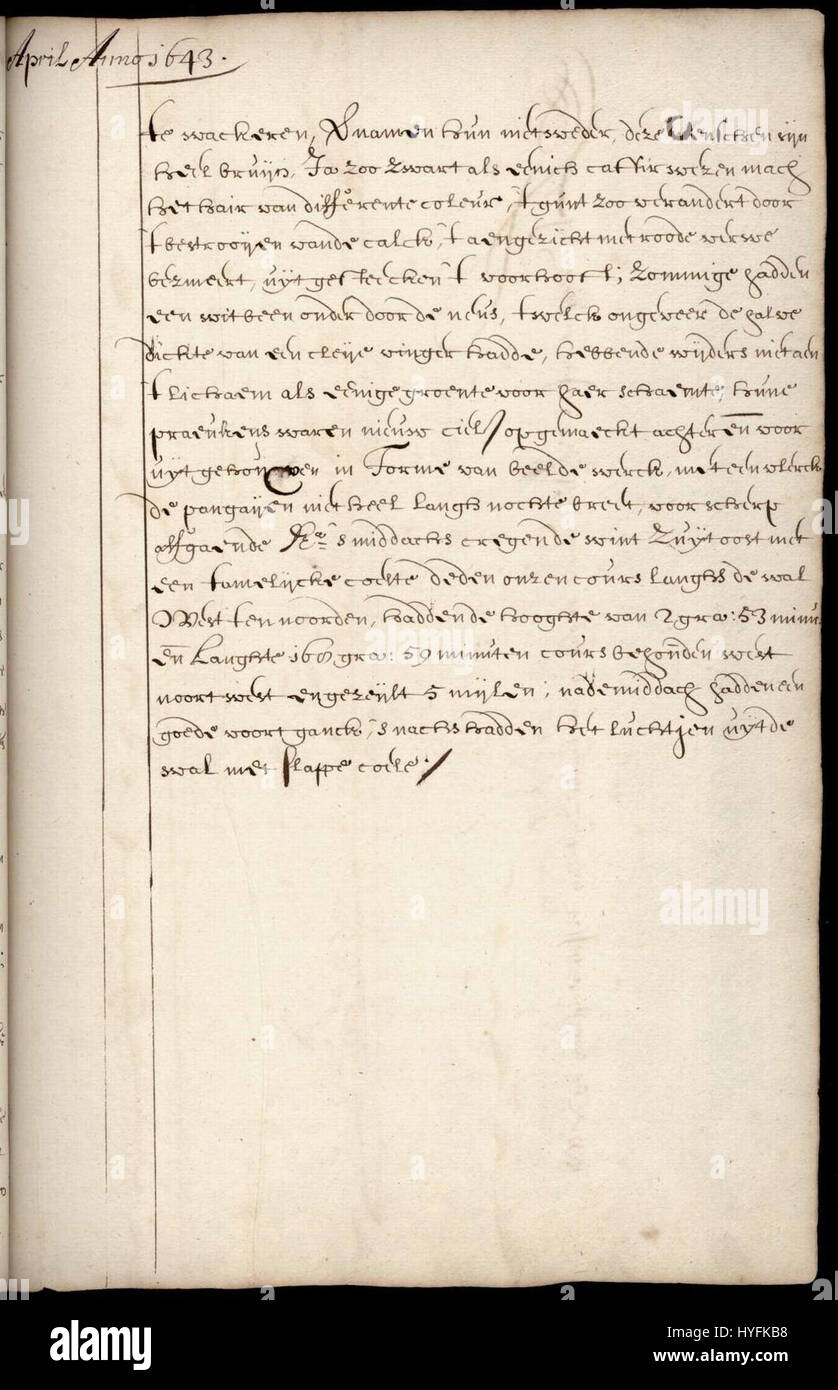 April Anno 1643.
te wackeren, quamen hun niet weder, deze menschen zijn
heel bruijn, Ja zoo zwart als eenich caffer wezen mach
het hair van differente coleur, 't gunt zoo verandert door
't bestrooijen vande calck, 't aengezicht met roode verwe
bezmeert, uijtgesteecken 't voorhooft; zommige hadden
een wit been onder door de neus, twelck ongeveer de halve
dickte van een cleije vinger hadde, hebbende wijders niet aen
't lichaem als eenige groente voor haer schaemte, hune
praeukens waren nieuw ciel, opgemaeckt achter en voor
uijtgehouwen in Forme van beelde werck, met een vlerck
de pangaijen niet heel langh nochte breet, voor scherp
affgaende 's middachs cregen de wint Zuijtoost met
een tamelijcke coelte deden onzen cours langhs de wal
West ten noorden, hadden de hooghte van 2 gra: 53 minu
en Langhte gra: 59 minuten cours gehouden west
noort west en gezeijlt 5 mijlen; nade middach hadden een
goede voortganck, 's nachs hadden het luchtjen uijt de
wal met slappe coele
alamy
alamy
a
HYFKB8
www.alamy.com